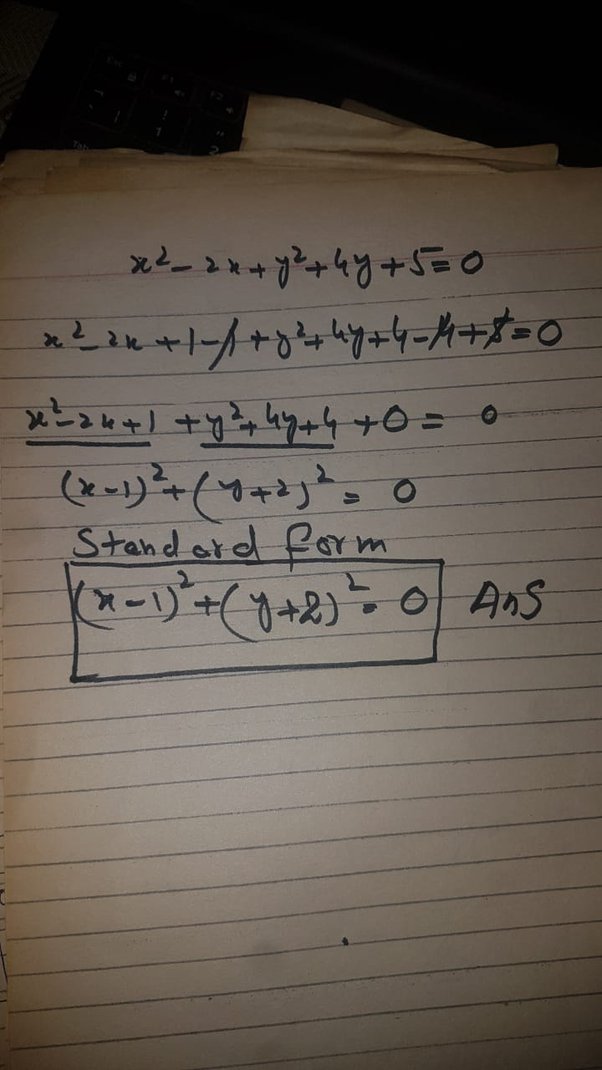 x² - 2x + y² + 4y + 5 = 0
x² - 2x + 1 - 1 + y² + 4y + 4 - 4 + 5 = 0
x² - 2x + 1 + y² + 4y + 4 + 0 = 0
(x - 1)² + (y + 2)² = 0
Standard form
(x - 1)² + (y + 2)² = 0 Ans